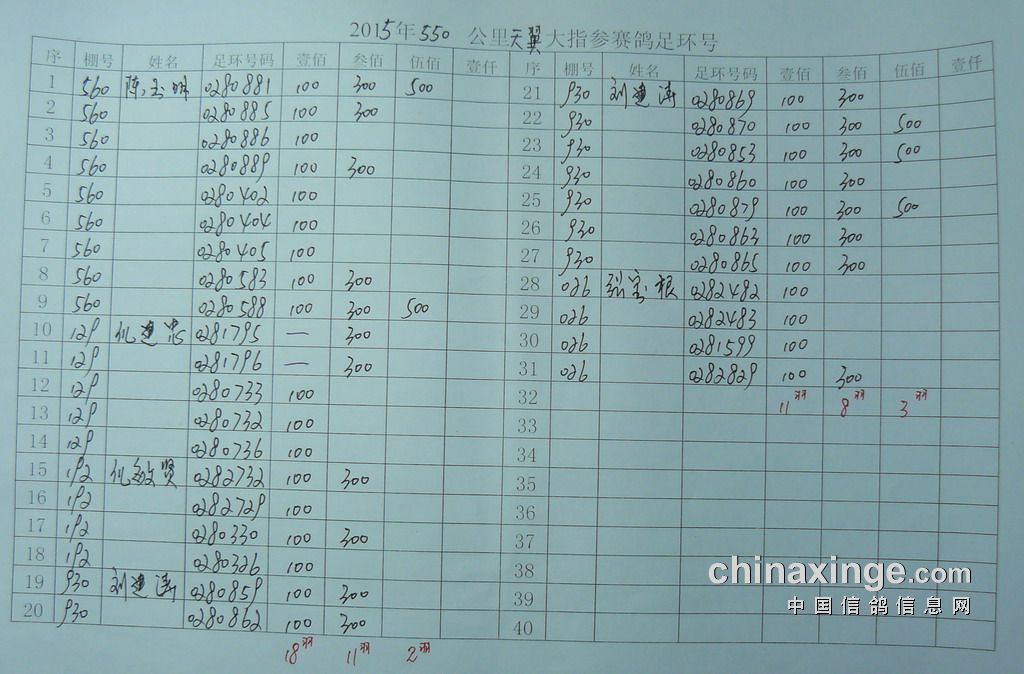 2015年550 公里天翼大指参赛鸽足环号
序 棚号 姓名 足环号码 壹佰 叁佰 伍佰 壹仟 序 棚号 姓名 足环号码 壹佰 叁佰 伍佰 壹仟
1 560 陈玉明 0280881 100 300 500 21 930 刘建涛 0280869 100 300
2 560 0280885 100 300 22 930 0280870 100 300 500
3 560 0280886 100 23 930 0280853 100 300 500
4 560 0280889 100 300 24 930 0280860 100 300
5 560 0280402 100 25 930 0280879 100 300 500
6 560 0280404 100 26 930 0280863 100 300
7 560 0280405 100 27 930 0280865 100 300
8 560 0280583 100 300 28 026 宝根 0282482 100
9 560 0280588 100 300 500 29 026 0282483 100
10 129 仇建忠 0281795 — 300 30 026 0281599 100
11 129 0281796 — 300 31 026 0282829 100 300
12 129 0280733 100 32 11羽 8羽 3羽
13 129 0280732 100 33
14 129 0280736 100 34
15 192 仇敏贤 0282732 100 300 35
16 192 0282729 100 36
17 192 0280330 100 300 37
18 192 0280326 100 38
19 930 刘建涛 0280859 100 300 39
20 930 0280862 100 300 40
18羽 11羽 2羽
chinaxinge.com
中国信鸽信息网